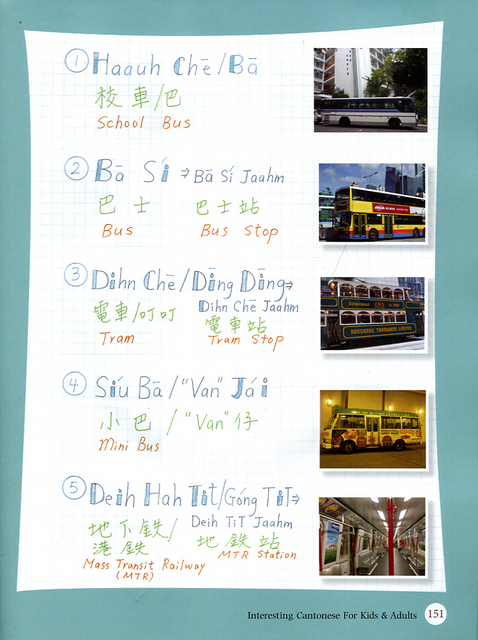 ① Haauh Chē/Bā
校車/巴
School Bus
② Bā Sí ⇒ Bā Sí Jaahm
巴士 巴士站
Bus Bus Stop
③ Dihn Chē/Dīng Dīng⇒
Dihn Chē Jaahm
電車/叮叮 電車站
Tram Tram Stop
HONGKONG TRAMWAYS LIMITED
④ Síu Bā/"Van" Jái
小巴/"Van"仔
Mini Bus
⑤ Deih Hah Tit/Góng Tit⇒
Deih Tit Jaahm
地下鉄/ 地鉄站
港鉄 MTR Station
Mass Transit Railway
(MTR)
Interesting Cantonese For Kids & Adults 151